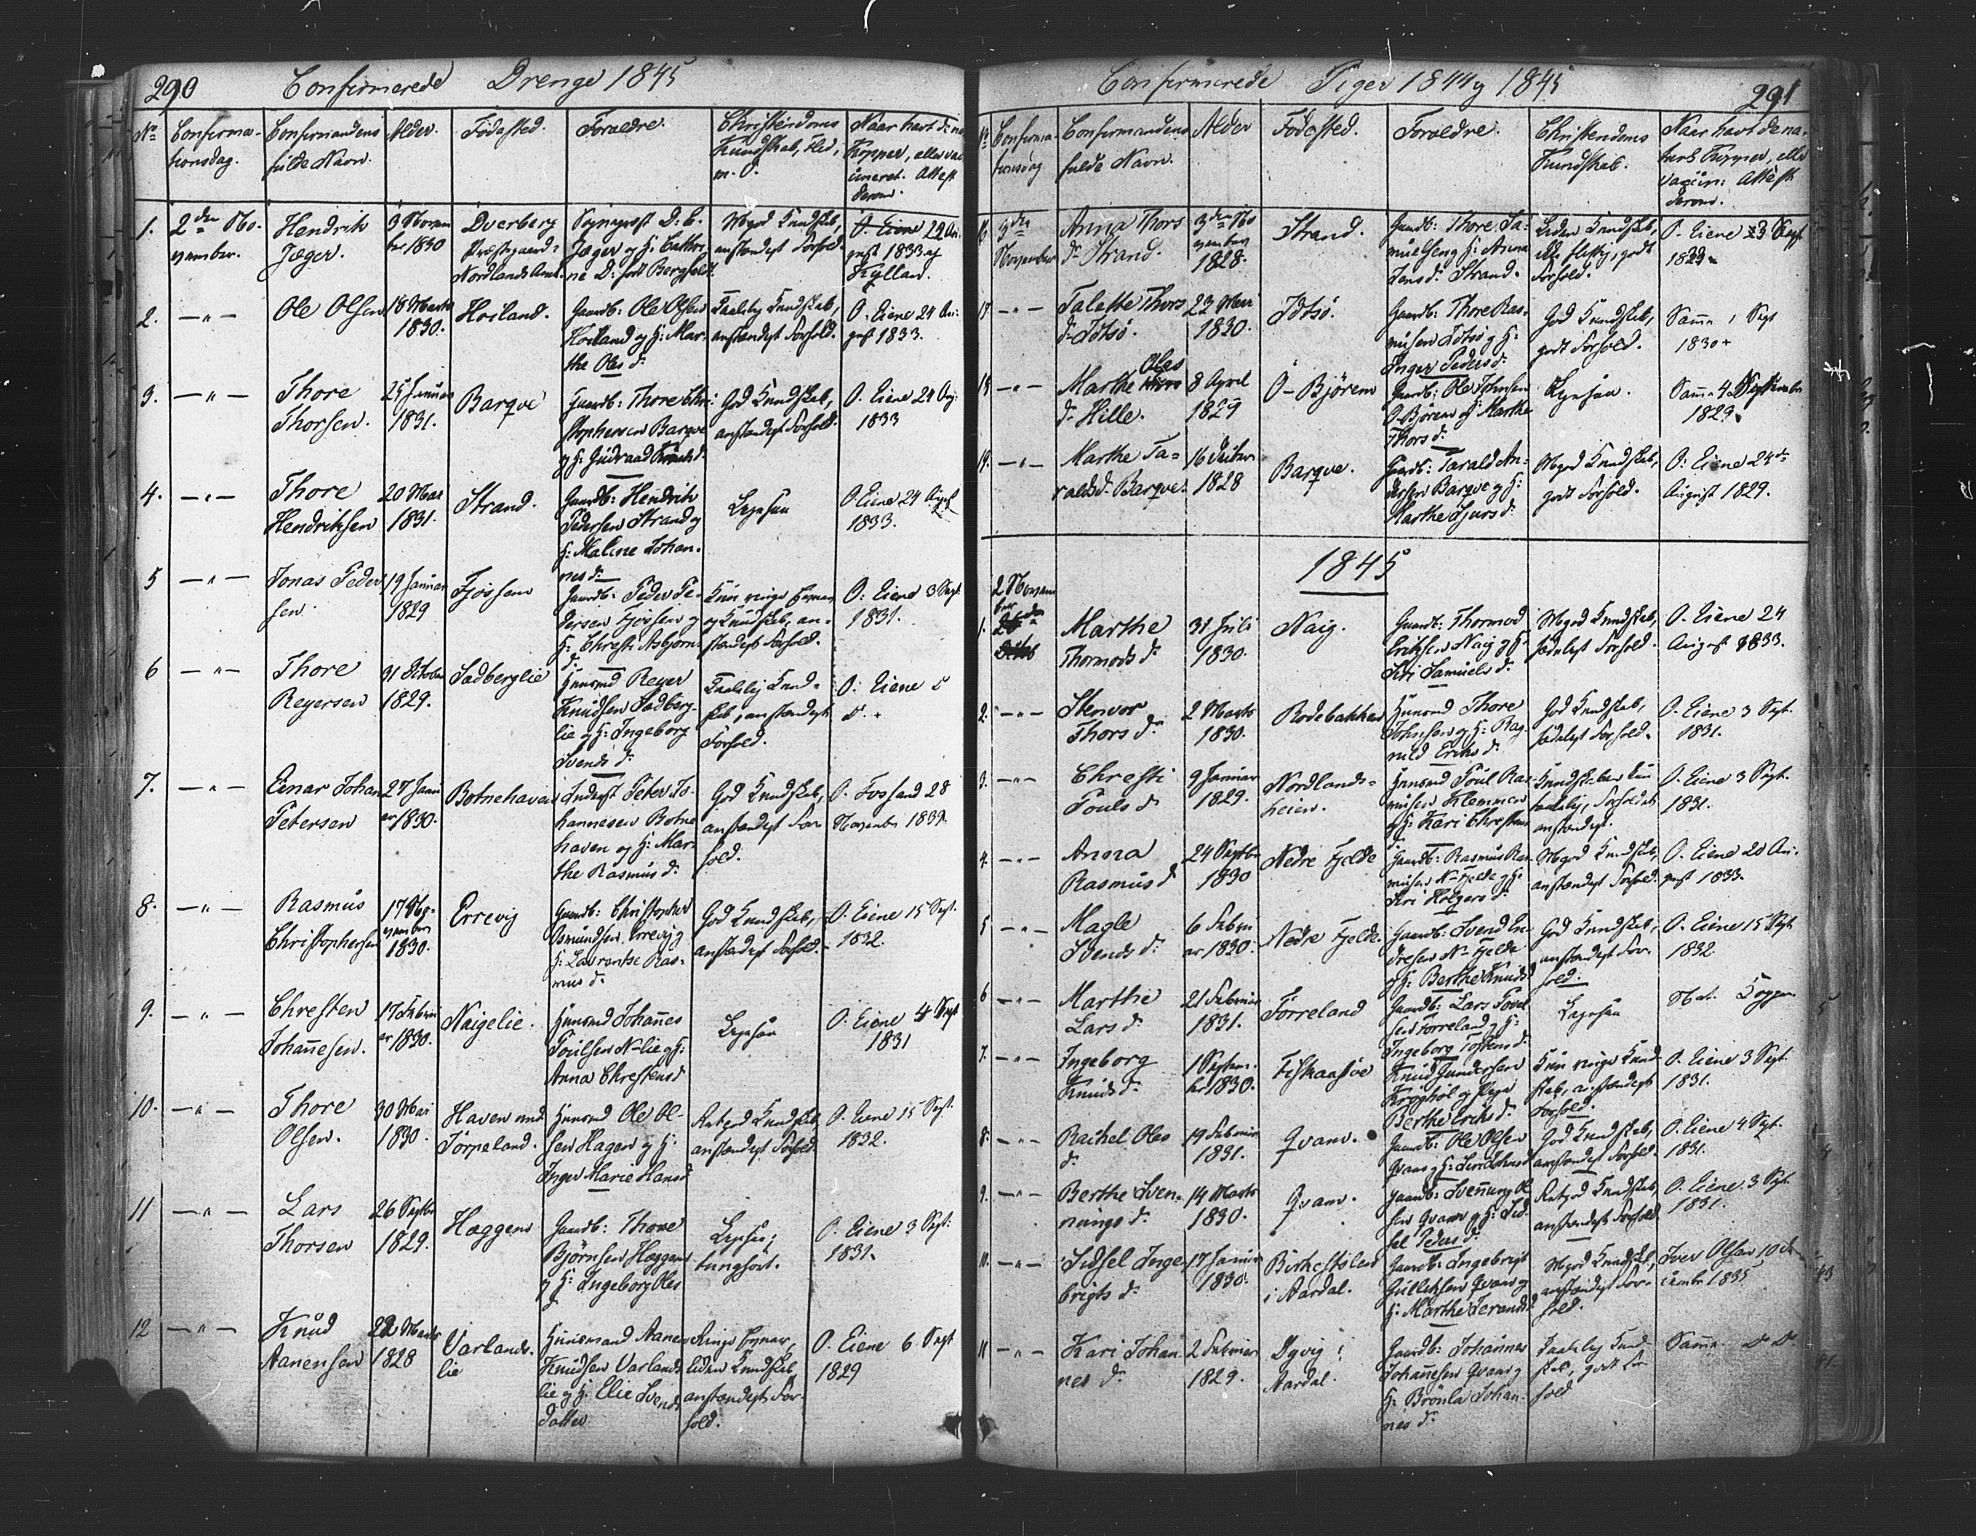 290 Confirmerede Drenge 1845
No Confirma-
tionsdag.
Confirmandens
fulde Navn.
Alder.
Fødested.
Forældre.
Christendoms
Kundskab, Flid,
m. v.
Naar havt de na
Kopper, eller vac
cineret. Attest
derom.
1. 2den No-
vember.
Hendrik
Jæger.
3 Novem
ber 1830
Dverberg
Præstegaard
Nordlands Amt.
Sognepræst D. C.
Jæger og H: Cathri
ne D: født Berg
Mgod Kundskab,
anstændigt Forhold.
O. Eiene 24 Au
gust 1833 af
Kyllan
2. — " —
Ole Olsen
18 Marts
1830.
Høiland.
Gaardb: Ole Olsen
Høiland og H: Mar-
the Oles d.
Taalelig Kundskab,
anstændigt Forhold.
O. Eiene 24 Au
gust 1833.
3. — " —
Thore
Thorsen.
25 Januar
1831.
Barqve
Gaardb: Thore Chri
stophersen Barqve
og H: Gudraad d.
God Kundskab,
anstændigt Forhold.
O. Eiene 24 Aug
1833
4. — " —
Thore
Hendriksen
20 Mai
1831.
Strand.
Gaardb: Hendrik
Pedersen Strand og
H: Maline Johan-
nes d.
Ligesaa
O. Eiene 24 Augst
1833.
5 — " —
Jonas Peder
sen.
19 Januar
1829
Fjossem
Gaardb: Peder Pe-
dersen Fjossen og
H: Christi Asbjørns
d.
Kun ringe Evner
og Kundskab, an-
stændigt Forhold.
O: Eiene 3 Sept.
1831.
6 — " —
Thore
Reyersen
31 October
1829.
Sadberglie
Huusmd Reyer
Knudsen Sadberg-
lie og H: Ingeborg
Svends d.
Taalelig Kund-
skab, anstændigt
Forhold.
O: Eiene d
d.
7. — " —
Einar Johan
Petersen
27 Janu
ar 1830.
Botnehaven
Indrst Peter Jo-
hannesen Botne
haven og H: Mar-
the Rasmus d.
God Kundskab,
anstændigt For
hold.
O. Fossand 28
November 1839.
8. — " —
Rasmus
Christophersen
17 No-
vember
1830.
Errevig
Gaardb: Christopher
Osmundsen Errevig
H: Laurentse Ras-
mus d.
God Kundskab,
anstændigt Forhold.
O. Eiene 15 Sept.
1832.
9. — " —
Chresten
Johannesen.
17 Febru
ar 1830.
Naigelie.
Huusmd Johannes
Poulsen N-lie og H:
Anna Chrestensd
Ligesaa
O. Eiene 4 Sept
1831
10. — " —
Thore
Olsen.
30 Mai
1830.
Haven und
Tørpeland.
Huusmd Ole Ol-
sen Hagen og H:
Inger Marie Hans d
Retgod Kundskab,
anstændigt Forhold.
O. Eiene 15 Sept.
1832.
11 — " —
Lars
Thorsen
26 Septbr
1829.
Hæggem
Gaardb: Thore
Bjørnsen Hæggem
og H: Ingeborg Oles
d.
Ligesaa;
tunghørt.
O. Eiene 3 Sept:
1831.
12 — " —
Knud
Aanensen
22 Marts
1828
Varlands-
lie
Huusmand Aanen
Knudsen Varlands
lie og H: Elie Svends
datter
Ringe Evner,
Liden Kundskab,
anstændigt For-
hold.
O. Eiene 6 Sept
1829
Confirmerede Piger 1844 og 1845 291
No Confirma-
tionsdag
Confirmandens
fulde Navn.
Alder
Fødested.
Forældre.
Christendoms
Kundskab.
Naar havt de na-
turl. Kopper, eller
vaccin: Attest
derom.
16 3die
November
Anna Thors
d. Strand.
3die No
vember
1828.
Strand.
Gaardb: Thore Sa-
muelsen og H: Anna
Jens d. Strand.
Liden Kundskab,
ikke flittig, godt
Forhold.
O. Eiene 23 Sept
1829.
17 — " —
Talette Thors
d. Idtsø.
23 Mai
1830.
Idtsø.
Gaardb: Thore Ras-
musen Idtsø og H:
Inger Peders d.
God Kundskab,
godt Forhold.
Samme 1 Sept
1830
18 — " —
Marthe Oles
d. Hille.
8 April
1829
O-Bjørem
Gaardb: Ole Johnsen
O-Bjørem og Marthe
Thors d.
Ligesaa.
Samme 4 September
1829.
19. — " —
Marthe Ta-
ralds d. Barqve.
16 Decbr
1828
Barqve.
Gaardb: Tarald An-
dersen Barqve og H:
Marthe Sjurs d.
Mgod Kundskab,
godt Forhold.
O: Eiene 24de
August 1829.
1845
1. 2 Novem
ber
Marthe
Thormods d.
31 Juli
1830.
Naig.
Gaardb: Thormod
Eriksen Naig og H:
Siri Samuels d.
Mgod Kundskab,
sædeligt Forhold.
O. Eiene 24
August 1833.
2. — " —
Stenvor
Thors d.
2 Marts
1830.
Rødebakken
Huusmd Thore
Johnsen og H: Rag-
nild Eriks d.
God Kundskab,
sædeligt Forhold.
O. Eiene 3 Sept.
1831.
3. — " —
Christi
Pouls d.
9 Januar
1829.
Nordlands-
heien.
Huusmd Poul Ras-
musen Klemmen
og H: Kari Chrestens
Kundskaben kun
taalelig, Forholdet
anstændigt.
O. Eiene 3 Sept.
1831.
4. — " —
Anna
Rasmus d
24 Septbr
1830
Nedre Fjelde
Gaardb: Rasmus Ras
musen N-Fjelde og H:
Siri Holgers d.
Mgod Kundskab,
anstændigt Forhold.
O. Eiene 20 Au-
gust 1833.
5 — " —
Magle
Svends d.
6 Febru
ar 1830.
Nedre Fjelde.
Gaardb: Svend En-
dresen N-Fjelde
og H: Berthe Knuds d
God Kundskab,
anstændigt For-
hold.
O. Eiene 15 Sept
1832
6 — " —
Marthe
Lars d.
21 Februar
1831.
Førreland
Gaardb: Lars Povel
sen Førreland og H:
Ingeborg Tostens d.
Ligesaa
Nat. Kopper
7. — " —
Ingeborg
Knuds d.
1 Septem-
ber 1830.
Fiskaaslie
Knud Gundersen
Krog hol og Pige
Berthe Eriks d.
Kun ringe Kund-
skab, anstændigt
Forhold.
O. Eiene 3 Sept.
1831.
8. — " —
Rachel Oles
d.
19 Februar
1831.
Qvam.
Gaardb: Ole Olsen
Qvam og H:
God Kundskab,
anstændigt Forhold.
O. Eiene 4 Sept.
1831.
9. — " —
Berthe Sven-
nings d.
14 Marts
1830.
Qvam.
Gaardb: Svennung Ol
sen Qvam og H: Sid-
sel Peders d.
Retgod Kundskab,
anstændigt Forhold
O. Eiene 3 Sept
1831.
10. — " —
Sidsel Inge-
brigts d.
17 Januar
1830.
Birkestølen
i Aardal.
Gaardb: Ingebrigt
Gulleiksen Qvam og
H: Marthe Torands d
Mgod Kundskab,
anstændigt For-
hold.
Iver Olsen 10 De
cember 1835
11 — " —
Kari Johan
nes d.
2 Februar
1829.
Dyvig i
Aardal.
Gaardb: Johannes
Johannesen Qvam og
H: Brønla Johan-
nes d.
Taalelig Kund
skab, godt For
hold
Samme d d.